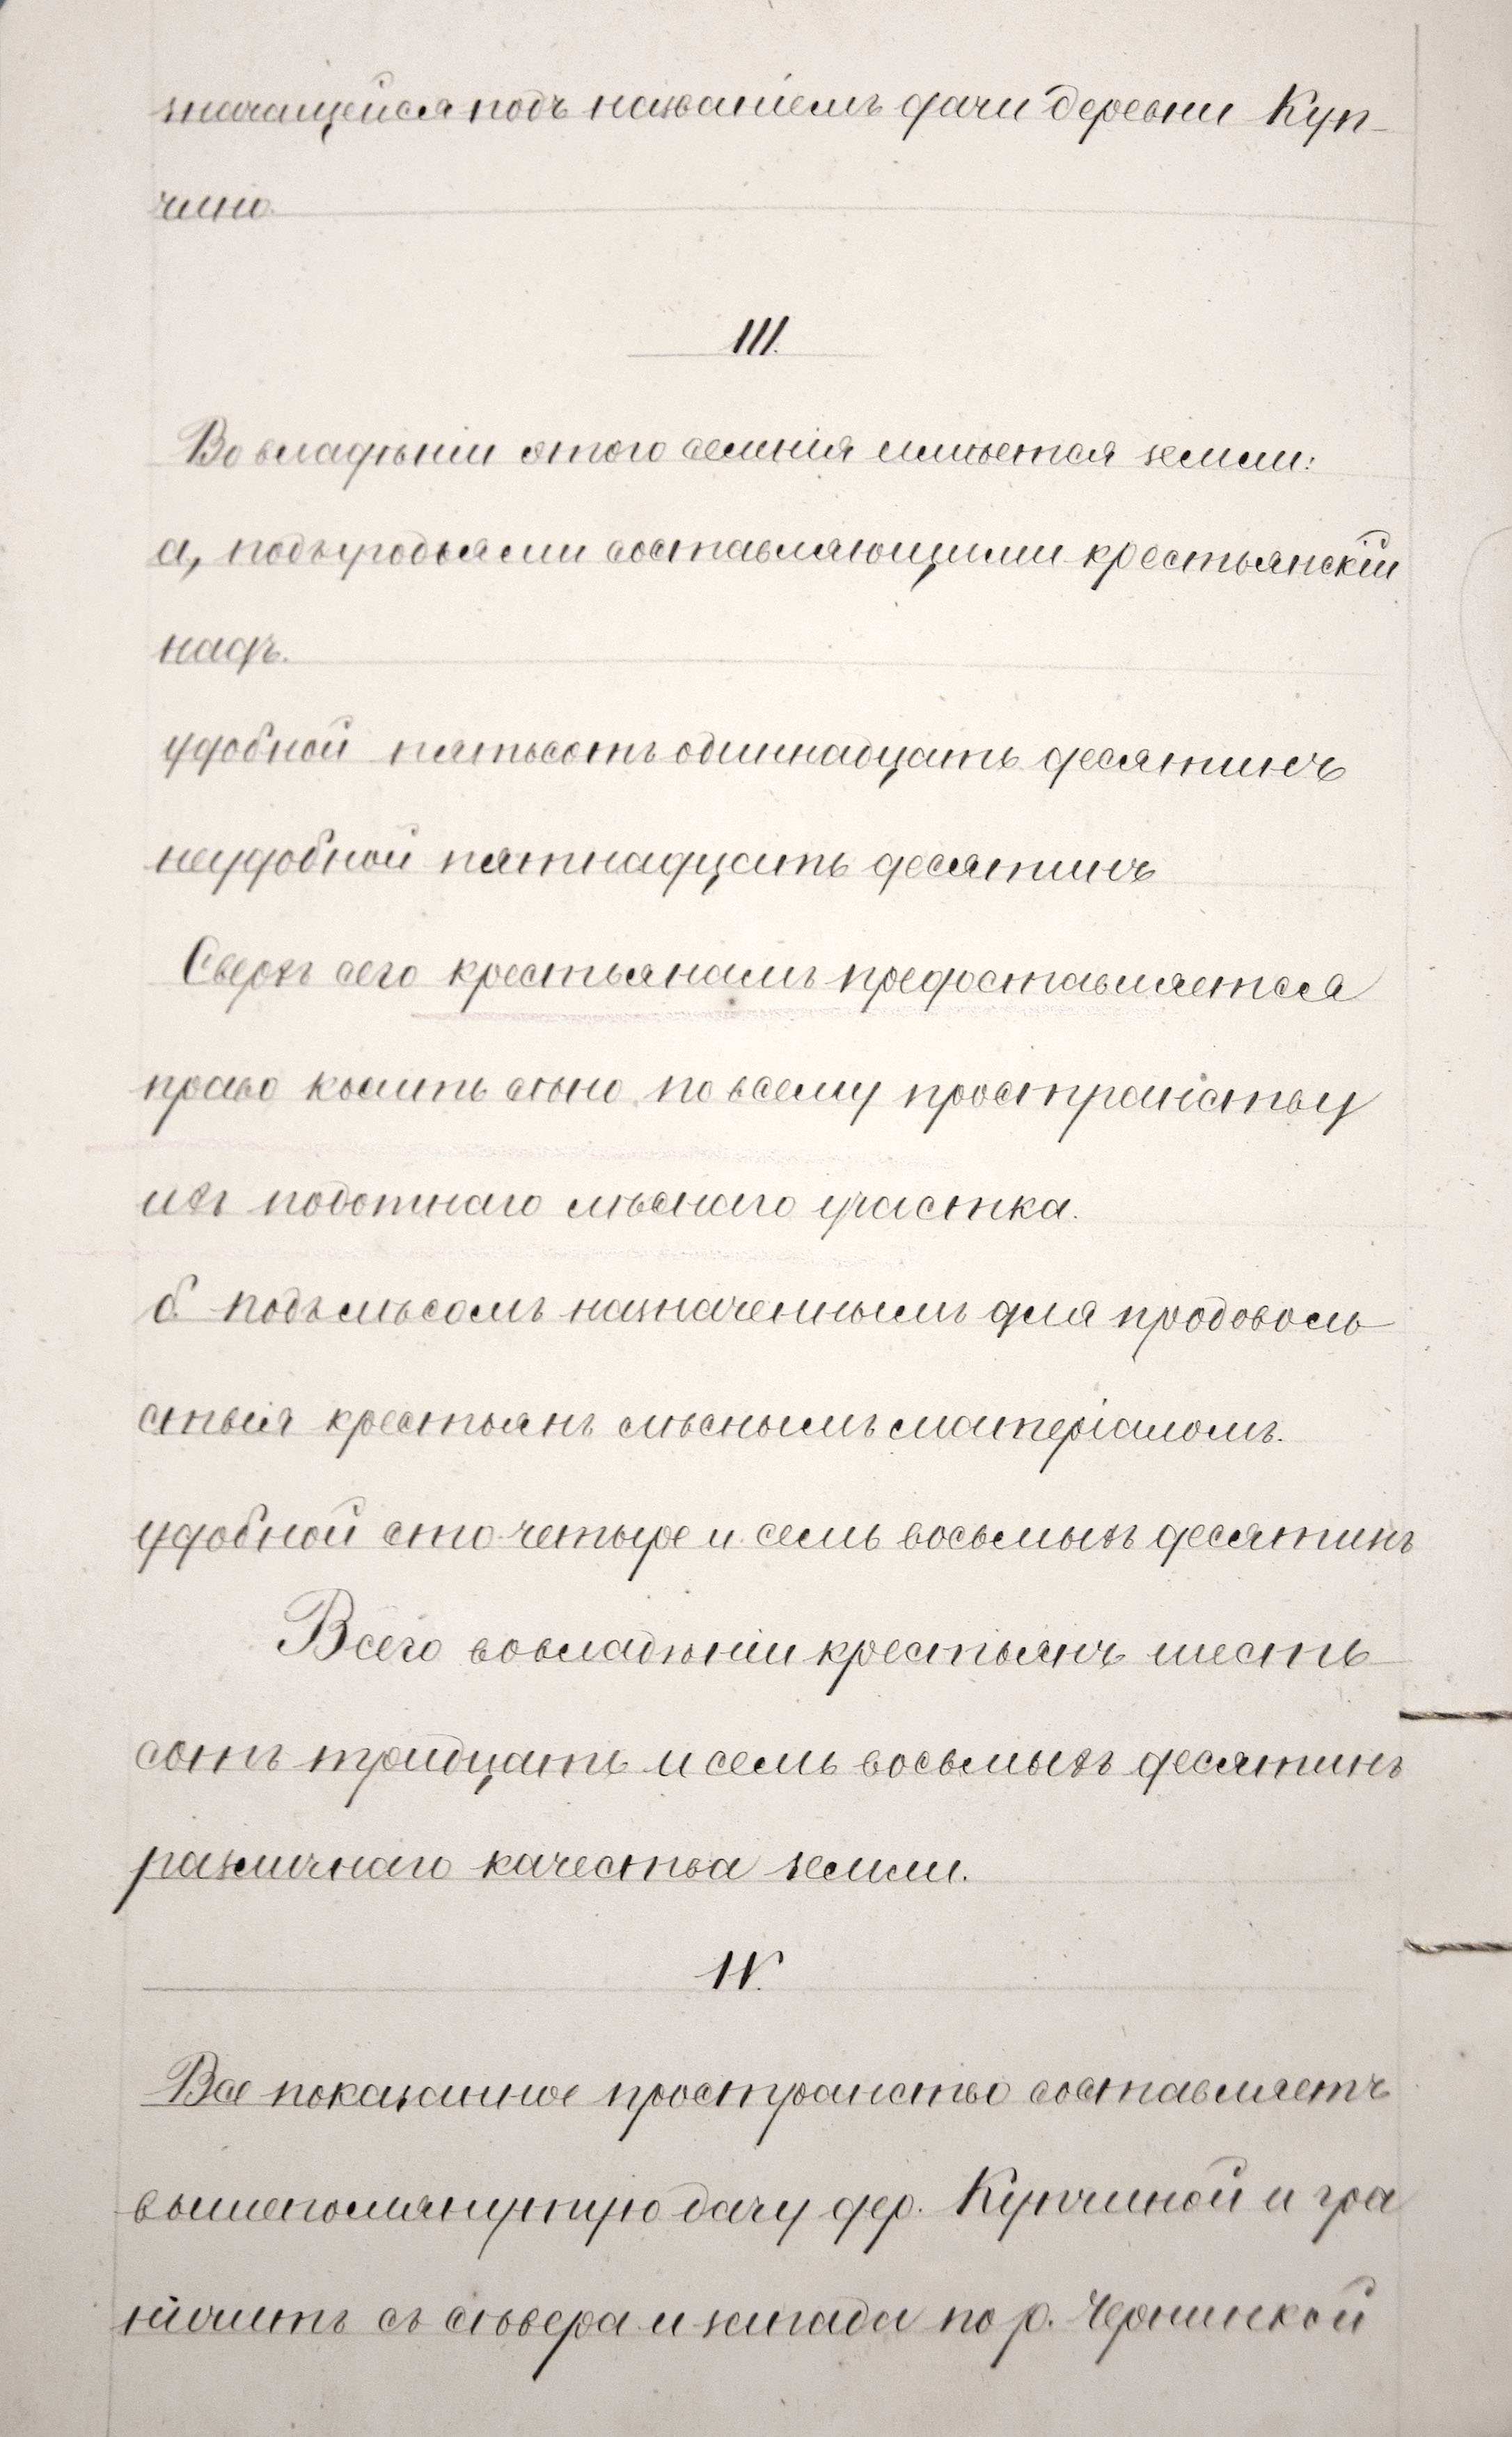 значащейся подъ названіемъ дачи деревни Куп-
чино.
III.
Во владѣніи этого селенія имѣется земли:
а, подъ угодьями составляющими крестьянскій
надѣ.
удобной пятьсотъ одиннадцать десятинъ
неудобной пятнадцать десятинъ
Сверхъ сего крестьянамъ предоставляется
право косить сѣно по всему пространству
ихъ лѣснаго участка.
б. подъ лѣсомъ назначеннымъ для продоволь
ствія крестьянъ лѣснымъ матеріаломъ.
удобной сто четыре и семь восьмыхъ десятинъ
Всего во владѣніи крестьянъ шесть
сотъ тридцать и семь восьмыхъ десятинъ
различнаго качества земли.
IV.
Все показанное пространство составляетъ
вышепомянутую дачу дер. Купчиной и гра
ничитъ съ сѣвера и запада по р. Чернинкой